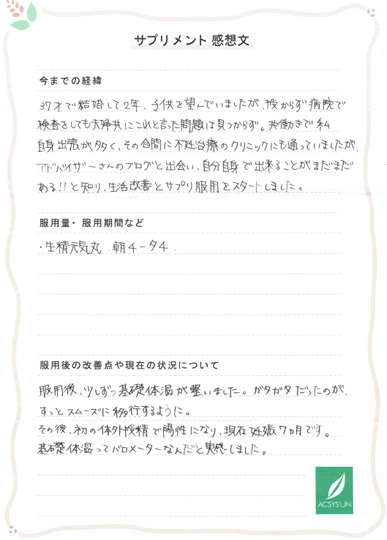 サプリメント 感想文
今までの経緯
37才で結婚して2年、子供を望んでいましたが、授からず病院で
検査をしても夫婦共にこれと言った問題は見つからず。共働きで私
自身出張が多く、その合間に不妊治療のクリニックにも通っていましたが、
アドバイザーさんのブログと出会い、自分自身で出来ることがまだまだ
ある!!と知り、生活改善とサプリ服用をスタートしました。
服用量・服用期間など
・生精元気丸 朝4-夕4.
服用後の改善点や現在の状況について
服用後、少しずつ基礎体温が整いました。ガタガタだったのが、
すっとスムーズに移行するように。
その後、初の体外授精で陽性になり、現在妊娠7ヵ月です。
基礎体温ってバロメーターなんだと実感しました。
ACSYSUN